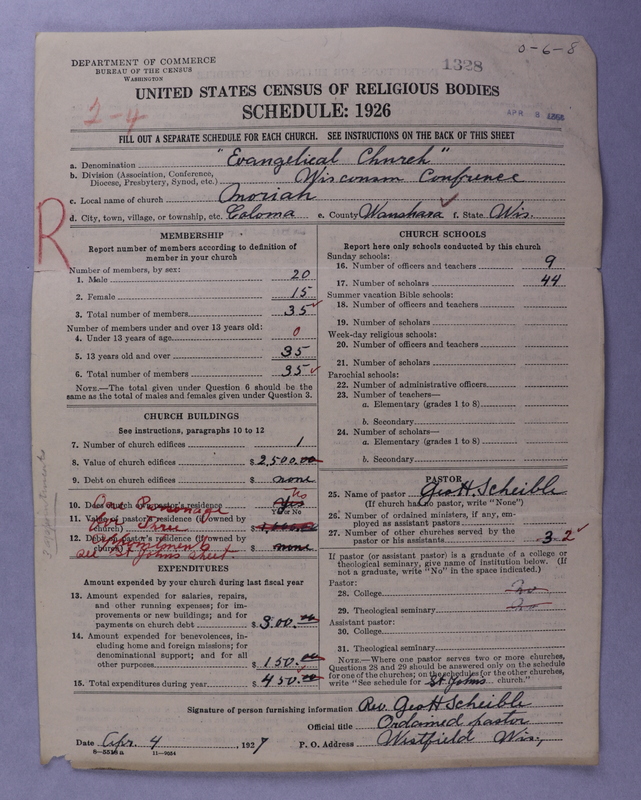 0-6-8
DEPARTMENT OF COMMERCE
BUREAU OF THE CENSUS
WASHINGTON
1328
2-4
UNITED STATES CENSUS OF RELIGIOUS BODIES
SCHEDULE: 1926
APR 8
FILL OUT A SEPARATE SCHEDULE FOR EACH CHURCH. SEE INSTRUCTIONS ON THE BACK OF THIS SHEET
a. Denomination "Evangelical Church"
b. Division (Association, Conference, Diocese, Presbytery, Synod, etc.) Wisconsin Confrence
c. Local name of church Moriah
d. City, town, village, or township, etc. Coloma e. County Waushara f. State Wis.
R
MEMBERSHIP
Report number of members according to definition of
member in your church
Number of members, by sex:
1. Male 20
2. Female 15
3. Total number of members 35
Number of members under and over 13 years old:
4. Under 13 years of age 0
5. 13 years old and over 35
6. Total number of members 35
NOTE.—The total given under Question 6 should be the
same as the total of males and females given under Question 3.
CHURCH BUILDINGS
See instructions, paragraphs 10 to 12
7. Number of church edifices 1
8. Value of church edifices $ 2,500.00
9. Debt on church edifices $ none
10. Does church own pastor's residence Yes no
Yes or No
One Parsonage
11. Value of pastor's residence (if owned by
church) $
for Three
12. Debt on pastor's residence (if owned by
church) $ none
appointments
see St Johns sheet
3 appointments
EXPENDITURES
Amount expended by your church during last fiscal year
13. Amount expended for salaries, repairs,
and other running expenses; for im-
provements or new buildings; and for
payments on church debt $ 300.00
14. Amount expended for benevolences, in-
cluding home and foreign missions; for
denominational support; and for all
other purposes $ 150.00
15. Total expenditures during year $ 450.00
CHURCH SCHOOLS
Report here only schools conducted by this church
Sunday schools:
16. Number of officers and teachers 9
17. Number of scholars 44
Summer vacation Bible schools:
18. Number of officers and teachers
19. Number of scholars
Week-day religious schools:
20. Number of officers and teachers
21. Number of scholars
Parochial schools:
22. Number of administrative officers
23. Number of teachers—
a. Elementary (grades 1 to 8)
b. Secondary
24. Number of scholars—
a. Elementary (grades 1 to 8)
b. Secondary
PASTOR
25. Name of pastor Geo H. Scheible
(If church has no pastor, write "None")
26. Number of ordained ministers, if any, em-
ployed as assistant pastors
27. Number of other churches served by the
pastor or his assistants 3 2
If pastor (or assistant pastor) is a graduate of a college or
theological seminary, give name of institution below. (If
not a graduate, write "No" in the space indicated.)
Pastor:
28. College No
29. Theological seminary No
Assistant pastor:
30. College
31. Theological seminary
NOTE.—Where one pastor serves two or more churches,
Questions 28 and 29 should be answered only on the schedule
for one of the churches; on the schedules for the other churches,
write "See schedule for St. Johns church."
Signature of person furnishing information Rev. Geo H Scheible
Official title Ordained pastor
Date Apr. 4, 1927 P. O. Address Westfield Wis.,
8-5518a 11-9034